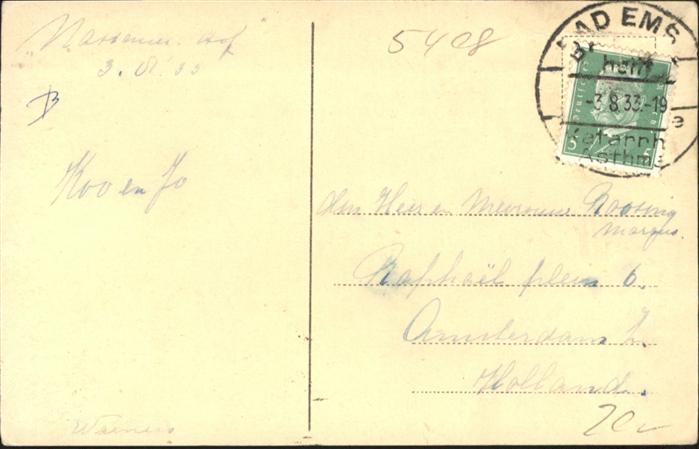 "Nassauer Hof"
3.8.33
Koo en Jo
5408
BAD EMS
heilt
-3.8.33.-19
Katarrh
Asthma
5 5
Den Heer en Mevrouw Roosing
Raphaël plein 6.
Amsterdam Z.
Holland.